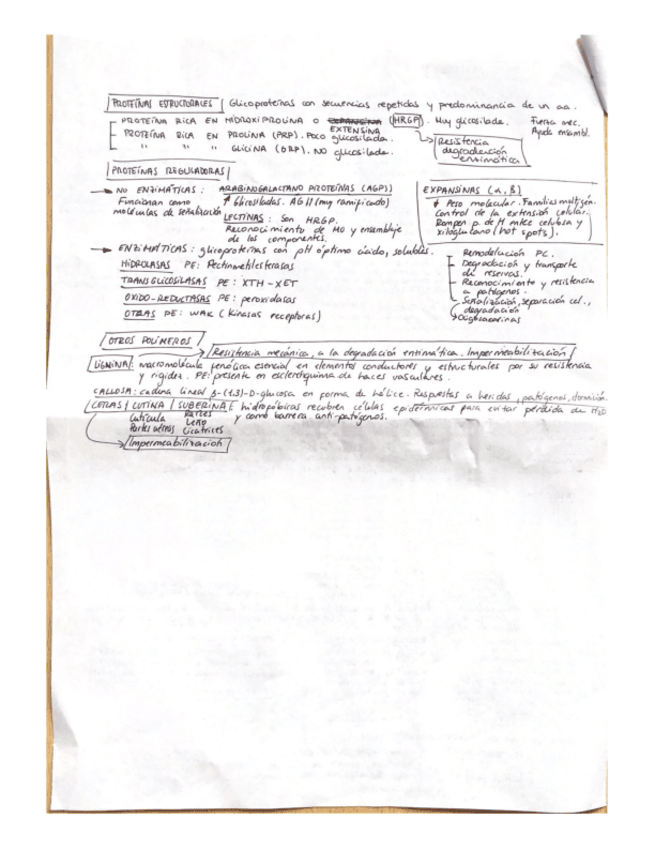 PROTEÍNAS ESTRUCTURALES Glicoproteínas con secuencias repetidas y predominancia de un aa.
PROTEÍNA RICA EN HIDROXIPROLINA O EXTENSINA (HRGP). Muy glicosilada.
Fuerza mec.
Ayuda ensambl.
PROTEÍNA RICA EN PROLINA (PRP). Poco glicosilada.
" " " GLICINA (GRP). NO glicosilada.
Resistencia
degradación
enzimática
PROTEÍNAS REGULADORAS
→ NO ENZIMÁTICAS: ARABINOGALACTANO PROTEÍNAS (AGP)
Funcionan como
moléculas de señalización
↑ Glicosiladas. AG II (muy ramificado)
LECTINAS: Son HRGP.
Reconocimiento de MO y ensamblaje
de los componentes.
EXPANSINAS (α, β)
Peso molecular. Familias multigén.
Control de la extensión celular.
Rompen p de H entre celulosa y
xiloglucano (hot spots).
→ ENZIMÁTICAS: glicoproteínas con pH óptimo ácido, solubles.
HIDROLASAS PE: Pectinmetilesterasas
TRANSGLICOSILASAS PE: XTH-XET
OXIDO-REDUCTASAS PE: peroxidasas
OTRAS PE: WAK (kinasas receptoras)
Remodelación PC.
Degradación y transporte
de reservas.
Reconocimiento y resistencia
a patógenos.
Señalización, separación cel.,
degradación
Oligosacarinas
OTROS POLÍMEROS
Resistencia mecánica, a la degradación enzimática. Impermeabilización
LIGNINA: macromolécula fenólica esencial en elementos conductores y estructurales por su resistencia
y rigidez. PE: presente en esclerénquima de haces vasculares.
CALLOSA: cadena lineal β-(1,3)-D-glucosa en forma de hélice. Respuestas a heridas, patógenos, dormición.
CERAS / CUTINA / SUBERINA: hidrofóbicas recubren células epidérmicas para evitar pérdida de H2O
y como barrera anti-patógenos.
Cutícula Raíces
Leño
Partes aéreas Cicatrices
Impermeabilización